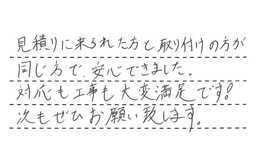 見積りに来られた方と取り付けの方が
同じ方で、安心できました.
対応も工事も大変満足です!
次もぜひお願い致します。